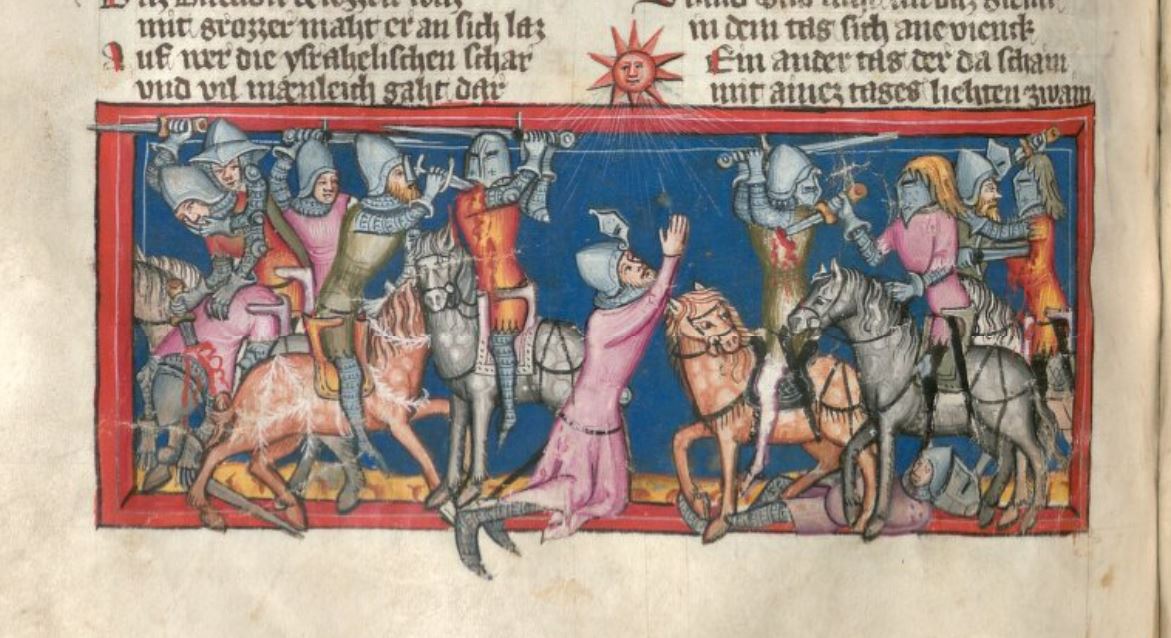 mit grozzer maht er an sich laz
Auf wer die ysrahelischen schar
vnd vil mænleich gaht dar
in dem tag sich ane vienck
Ein ander tag der da schain
mit ainez tages liehten zwain